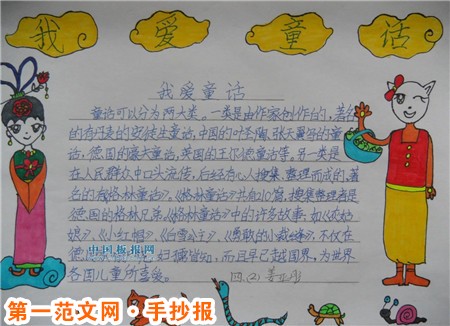 我 爱 童 话
我爱童话
童话可以分为两大类。一类是由作家创作的,著名
的有丹麦的安徒生童话,中国的叶圣陶、张天翼写的童
话,德国的豪夫童话,英国的王尔德童话等。另一类是
在人民群众中口头流传,后经有心人搜集、整理而成的,著
名的有《格林童话》。《格林童话》共有 搜集整理者是
德国的格林兄弟。《格林童话》中的许多故事,如《灰姑
娘》、《小红帽》、《白雪公主》、《勇敢的小裁缝》,不仅在
德国 妇孺皆知,而且早已越国界,为世界
各国儿童所喜爱。
四(2)
中国板报网
第一范文网·手抄报